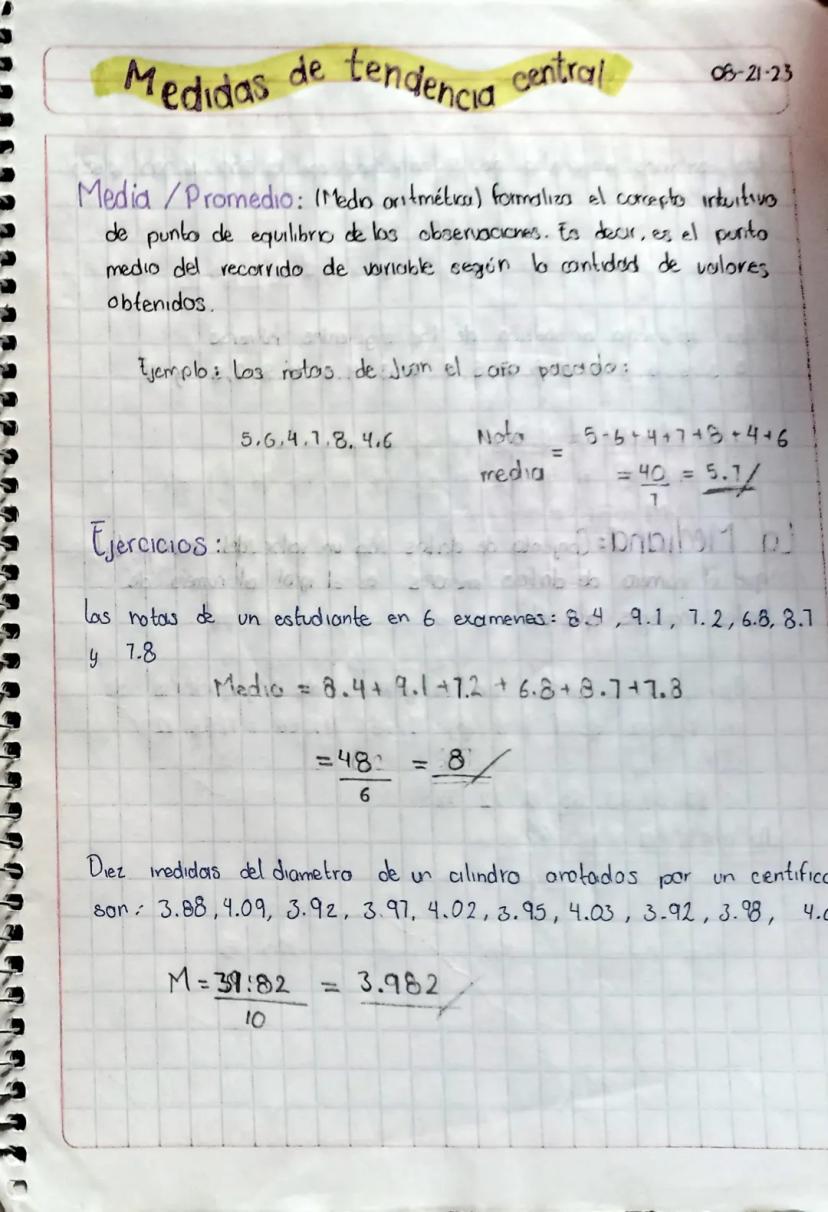 Medidas de tendencia central 08-21-23
Media / Promedio: (Media aritmética) formaliza el concepto intuitivo
de punto de equilibrio de las observaciones. Es decir, es el punto
medio del recorrido de variable según la cantidad de valores
obtenidos.
Ejemplo: Las notas de Juan el año pasado:
5,6,4,7,8,4,6 Nota media = 5+6+4+7+8+4+6
= 40/7 = 5.7/
Ejercicios:
Las notas de un estudiante en 6 examenes: 8.4, 9.1, 7.2, 6.8, 8.7
y 7.8
Media = 8.4+ 9.1+7.2 + 6.8+ 8.7+7.8
= 48/6 = 8/
Diez medidas del diametro de un cilindro anotados por un centifico
son: 3.88, 4.09, 3.92, 3.97, 4.02, 3.95, 4.03, 3.92, 3.98,
M = 39.82/10 = 3.982/